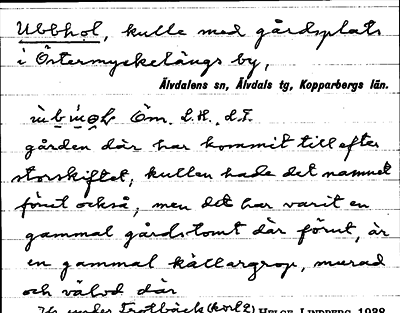 Ubbhol, kulle med gårdsplats
i Östermyckelängs by,
Älvdalens sn, Älvdals tg, Kopparbergs län.
Öm. L.H., L.T.
gården där har kommit till efter
storskiftet, kullen hade det namnet
förut också, men det har varit en
gammal gårdstomt där förut, är
en gammal källargrop, murad
och välvd där
under Trotbäck (kort 2) HELGE LINDBERG 1938